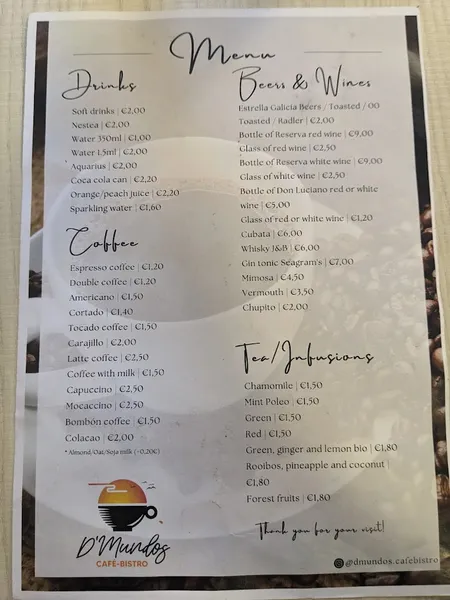 Menu
Drinks
Soft drinks | €2,00
Nestea | €2,00
Water 350ml | €1,00
Water 1,5ml | €2,00
Aquarius | €2,00
Coca cola can | €2,20
Orange/peach juice | €2,20
Sparkling water | €1,60
Coffee
Espresso coffee | €1,20
Double coffee | €1,20
Americano | €1,50
Cortado | €1,40
Tocado coffee | €1,50
Carajillo | €2,00
Latte coffee | €2,50
Coffee with milk | €1,50
Capuccino | €2,50
Mocaccino | €2,50
Bombón coffee | €1,50
Colacao | €2,00
* Almond/Oat/Soja milk (+0,20€)
D'Mundos
CAFÉ-BISTRO
Beers & Wines
Estrella Galicia Beers / Toasted / 00
Toasted / Radler | €2,00
Bottle of Reserva red wine | €9,00
Glass of red wine | €2,50
Bottle of Reserva white wine | €9,00
Glass of white wine | €2,50
Bottle of Don Luciano red or white
wine | €5,00
Glass of red or white wine | €1,20
Cubata | €6,00
Whisky J&B | €6,00
Gin tonic Seagram's | €7,00
Mimosa | €4,50
Vermouth | €3,50
Chupito | €2,00
Tea/Infusions
Chamomile | €1,50
Mint Poleo | €1,50
Green | €1,50
Red | €1,50
Green, ginger and lemon bio | €1,80
Rooibos, pineapple and coconut |
€1,80
Forest fruits | €1,80
Thank you for your visit!
@dmundos.cafebistro